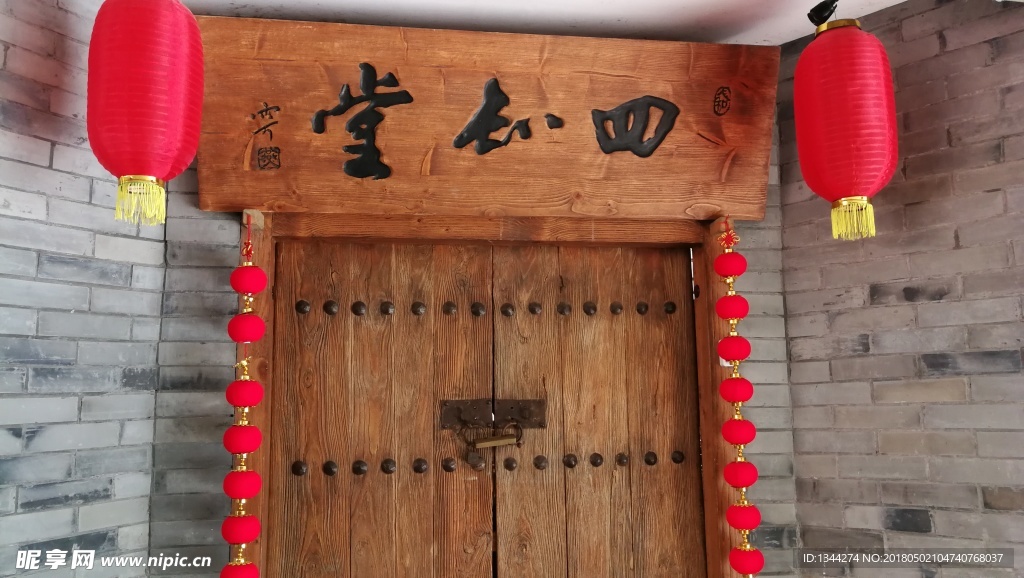 四知堂
昵享网 www.nipic.cn
ID:1344274 NO:20180502104740768037